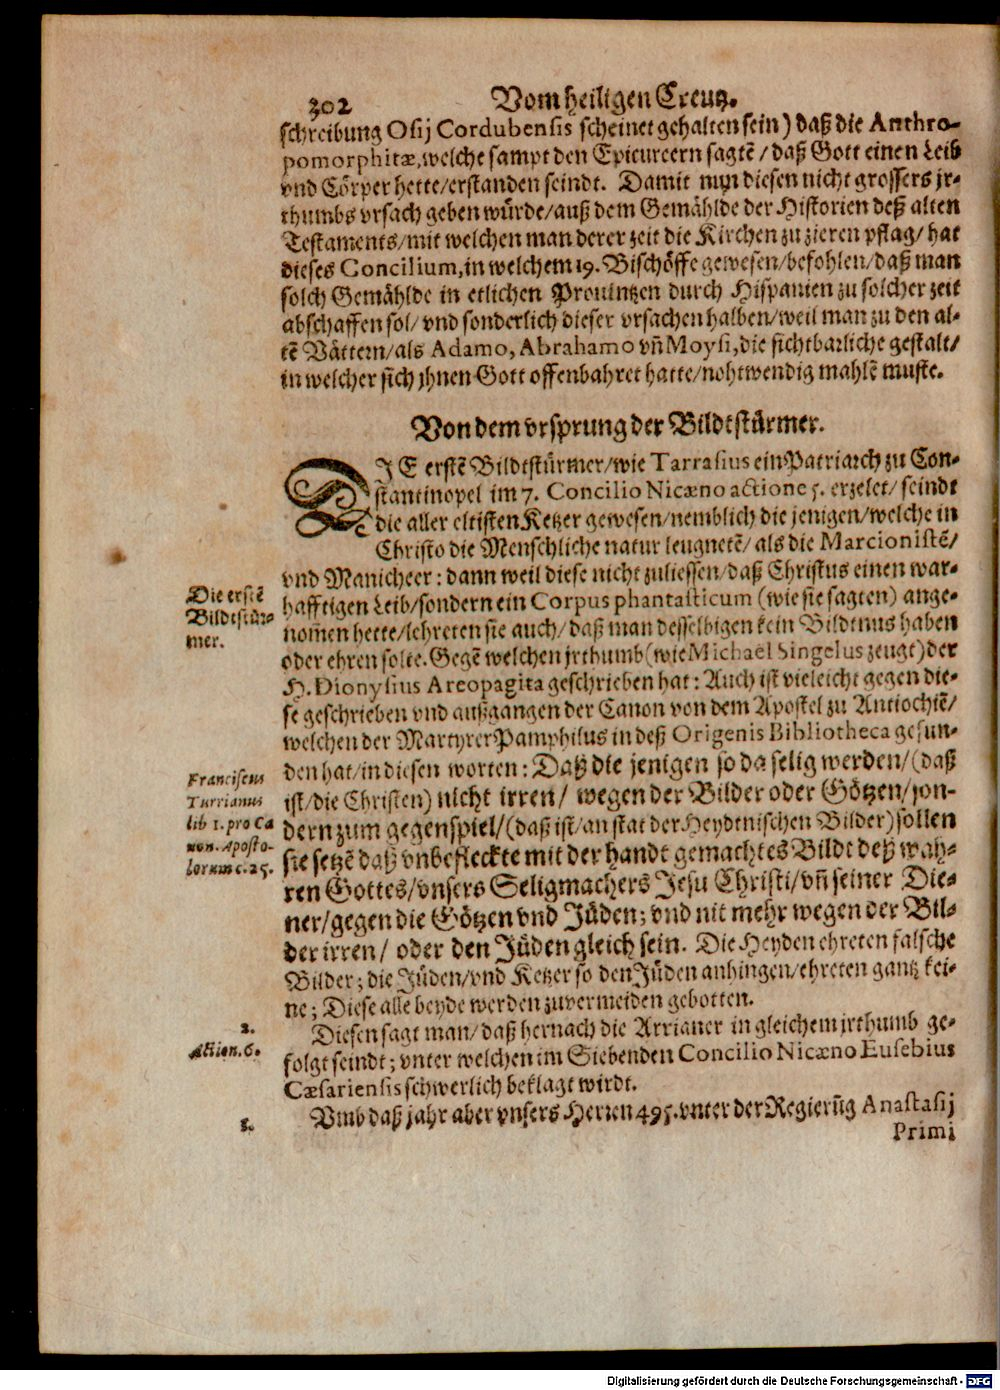 302 Vom heiligen Creutz.
schreibung Osij Cordubensis scheinet gehalten sein) daß die Anthro-
pomorphitæ, welche sampt den Epicureern sagtē / daß Gott einen Leib
vnd Cörper hette/erstanden seindt. Damit nun diesen nicht grossers jr-
thumbs vrsach geben würde/auß dem Gemählde der Historien deß alten
Testaments/mit welchen man derer zeit die Kirchen zu zieren pflag/ hat
dieses Concilium, in welchem 19. Bischöffe gewesen/befohlen/daß man
solch Gemählde in etlichen Prouintzen durch Hispanien zu solcher zeit
abschaffen sol/ vnd sonderlich dieser vrsachen halben/weil man zu den al-
tē Vättern/als Adamo, Abrahamo vñ Moysi, die sichtbarliche gestalt/
in welcher sich jhnen Gott offenbahret hatte/nohtwendig mahlē muste.
Von dem vrsprung der Bildtstürmer.
DIE erstē Bildtstürmer/wie Tarrasius ein Patriarch zu Con-
stantinopel im 7. Concilio Nicæno actione 5. erzelet/ seindt
die aller eltisten Ketzer gewesen/nemblich die jenigen/welche in
Christo die Menschliche natur leugnetē/ als die Marcionistē/
vnd Manicheer: dann weil diese nicht zuliessen/daß Christus einen war-
Die erstē
Bildtstür-
mer.
hafftigen Leib/sondern ein Corpus phantasticum (wie sie sagten) ange-
nom̃en hette/lehreten sie auch/ daß man desselbigen kein Bildtnus haben
oder ehren solte. Gegē welchen jrthumb (wie Michaël Singelus zeugt) der
H. Dionysius Areopagita geschrieben hat: Auch ist vieleicht gegen die-
se geschrieben vnd außgangen der Canon von dem Apostel zu Antiochiē/
welchen der Martyrer Pamphilus in deß Origenis Bibliotheca gefun-
den hat/in diesen worten: Daß die jenigen so da selig werden/(daß
Franciscus
Turrianus
lib 1. pro Ca
non. Aposto-
lorum c. 25.
ist/die Christen) nicht irren/ wegen der Bilder oder Götzen/son-
dern zum gegenspiel/(daß ist/an stat der Heydtnischen Bilder) sollen
sie setzē daß vnbefleckte mit der handt gemachtes Bildt deß wah-
ren Gottes/vnsers Seligmachers Jesu Christi/vñ seiner Die-
ner/gegen die Götzen vnd Jüden; vnd nit mehr wegen der Bil-
der irren/ oder den Jüden gleich sein. Die Heyden ehreten falsche
Bilder; die Jüden/vnd Ketzer so den Jüden anhingen/ehreten gantz kei-
ne; Diese alle beyde werden zuvermeiden gebotten.
2.
Diesen sagt man/daß hernach die Arrianer in gleichem jrthumb ge-
Action. 6.
folgt seindt; vnter welchen im Siebenden Concilio Nicæno Eusebius
Cæsariensis schwerlich beklagt wirdt.
3.
Vmb daß jahr aber vnsers Herren 495. vnter der Regierũg Anastasij
Primi
Digitalisierung gefördert durch die Deutsche Forschungsgemeinschaft - DFG